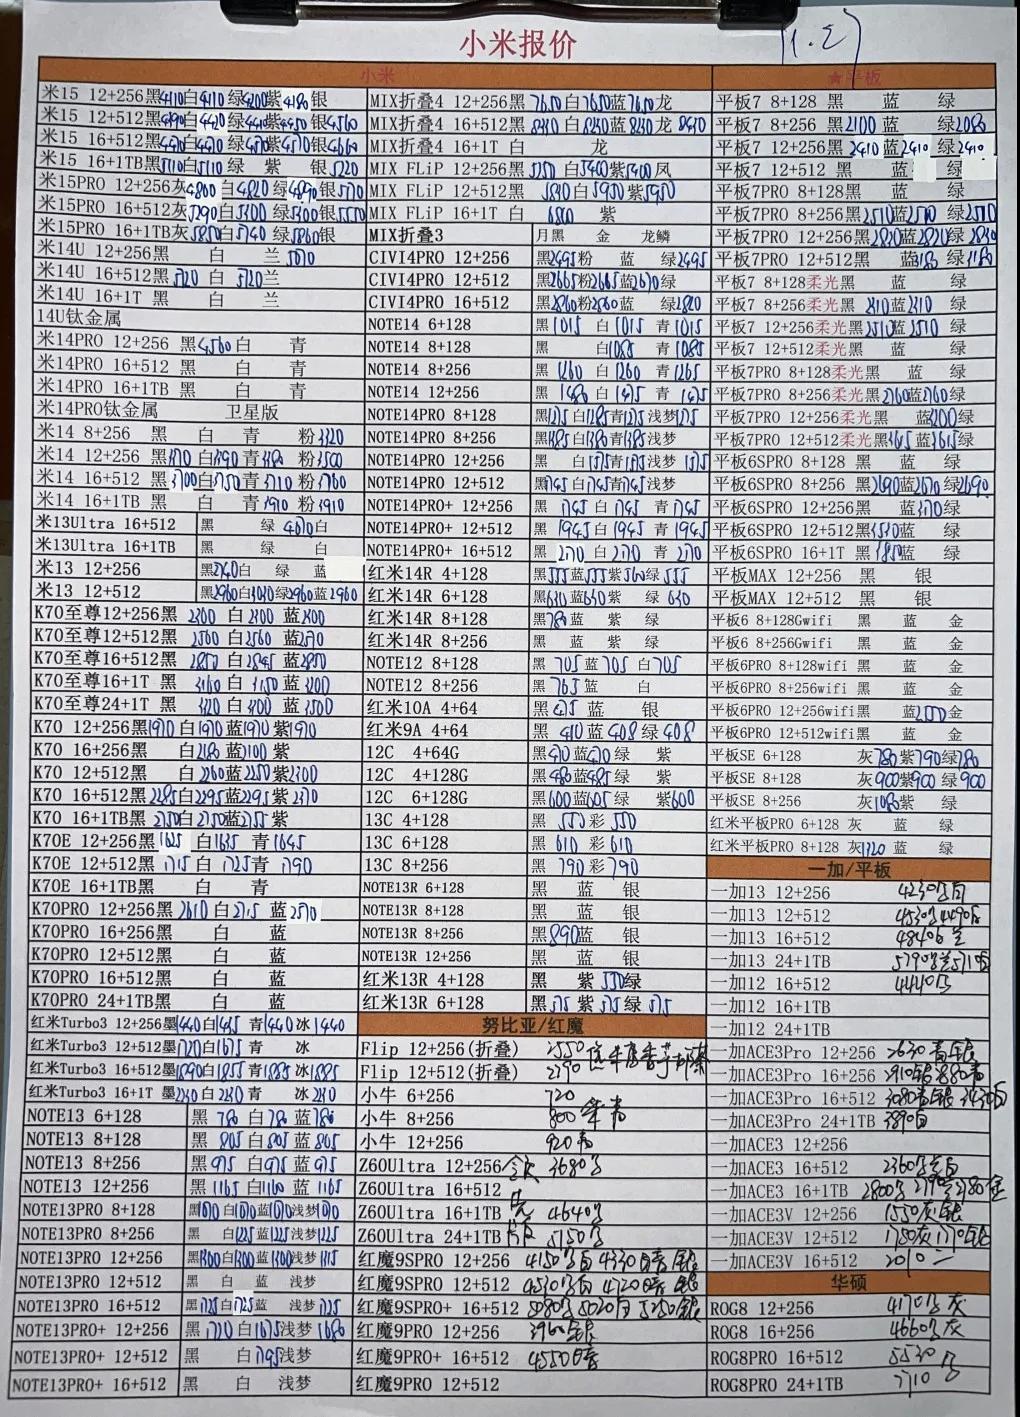 小米报价
11.2
小米
米15 12+256黑4110白4110绿4200紫4180银
米15 12+512黑4390白4420绿4410紫4450银4560
米15 16+512黑4470白4470绿4510紫4510银4660
米15 16+1TB黑5110白5110绿 紫 银5220
米15PRO 12+256灰4800白4820绿4890银5170
米15PRO 16+512灰5290白5300绿5300银5550
米15PRO 16+1TB灰5850白5740绿5860银
米14U 12+256黑 白 兰5070
米14U 16+512黑5120白5120兰
米14U 16+1T 黑 白 兰
14U钛金属
米14PRO 12+256 黑4560白 青
米14PRO 16+512 黑 白 青
米14PRO 16+1TB 黑 白 青
米14PRO钛金属 卫星版
米14 8+256 黑 白 青 粉3320
米14 12+256 黑3170白3390青3380粉3500
米14 16+512 黑3700白3750青3710粉3760
米14 16+1TB 黑 白 青3910粉3910
米13Ultra 16+512 黑 绿4670白
米13Ultra 16+1TB 黑 绿 白
米13 12+256 黑2740白 绿 蓝
米13 12+512 黑2960白3030绿2960蓝2960
K70至尊12+256黑2300白2300蓝2300
K70至尊12+512黑2560白2560蓝2570
K70至尊16+512黑2850白2845蓝2850
K70至尊16+1T 黑3160白3150蓝3200
K70至尊24+1T 黑3320白3300蓝3500
K70 12+256黑1970白1970蓝1970紫1970
K70 16+256黑 白2180蓝2100紫
K70 12+512黑 白2260蓝2250紫2300
K70 16+512黑2285白2295蓝2295紫2370
K70 16+1TB黑2750白2750蓝2755紫
K70E 12+256黑1625白1635青1645
K70E 12+512黑1715白1725青1790
K70E 16+1TB黑 白 青
K70PRO 12+256黑2610白2715蓝2570
K70PRO 16+256黑 白 蓝
K70PRO 12+512黑 白 蓝
K70PRO 16+512黑 白 蓝
K70PRO 24+1TB黑 白 蓝
红米Turbo3 12+256墨1440白1435青1440冰1440
红米Turbo3 12+512墨1720白1675青 冰
红米Turbo3 16+512墨1890白1855青1885冰1885
红米Turbo3 16+1T 墨2230白2230青 冰2230
NOTE13 6+128 黑780白780蓝780
NOTE13 8+128 黑805白805蓝805
NOTE13 8+256 黑975白975蓝975
NOTE13 12+256 黑1165白1160蓝1165
NOTE13PRO 8+128 黑1070白1070蓝1070浅梦1070
NOTE13PRO 8+256 黑 白1225蓝1225浅梦1225
NOTE13PRO 12+256 黑1300白1300蓝1300浅梦1315
NOTE13PRO 12+512 黑 白 蓝 浅梦
NOTE13PRO 16+512 黑1725白1725蓝 浅梦1725
NOTE13PRO+ 12+256 黑1720白1675浅梦1680
NOTE13PRO+ 12+512 黑 白1795浅梦
NOTE13PRO+ 16+512 黑 白 浅梦
MIX折叠4 12+256黑7650白7650蓝7650龙
MIX折叠4 16+512黑8230白8230蓝8230龙8430
MIX折叠4 16+1T 白 龙
MIX FLiP 12+256黑5250白5400紫5400凤
MIX FLiP 12+512黑5830白5950紫5950
MIX FLiP 16+1T 白6880紫
MIX折叠3 月黑 金 龙鳞
CIVI4PRO 12+256 黑2495粉 蓝 绿2495
CIVI4PRO 12+512 黑2665粉2665蓝2670绿
CIVI4PRO 16+512 黑2860粉2860蓝 绿2820
NOTE14 6+128 黑1015白1015青1015
NOTE14 8+128 黑 白1085青1085
NOTE14 8+256 黑1260白1260青1265
NOTE14 12+256 黑1480白1475青1475
NOTE14PRO 8+128 黑1275白1285青1275浅梦1275
NOTE14PRO 8+256 黑1385白1380青1385浅梦
NOTE14PRO 12+256 黑 白1575青1575浅梦1575
NOTE14PRO 12+512 黑1745白1745青1745浅梦
NOTE14PRO+ 12+256 黑1745白1745青1745
NOTE14PRO+ 12+512 黑1945白1945青1945
NOTE14PRO+ 16+512 黑2170白2170青2170
红米14R 4+128 黑555蓝555紫560绿555
红米14R 6+128 黑630蓝630紫 绿630
红米14R 8+128 黑780蓝 紫 绿
红米14R 8+256 黑 蓝 紫 绿
NOTE12 8+128 黑705蓝705白705
NOTE12 8+256 黑765蓝 白
红米10A 4+64 黑475蓝 银
红米9A 4+64 黑410蓝408绿408
12C 4+64G 黑470蓝470绿 紫
12C 4+128G 黑480蓝485绿 紫
12C 6+128G 黑600蓝605绿 紫600
13C 4+128 黑550彩550
13C 6+128 黑610彩610
13C 8+256 黑790彩790
NOTE13R 6+128 黑 蓝 银
NOTE13R 8+128 黑 蓝 银
NOTE13R 8+256 黑890蓝 银
NOTE13R 12+256 黑 蓝 银
红米13R 4+128 黑 紫550绿
红米13R 6+128 黑575紫575绿575
努比亚/红魔
Flip 12+256(折叠) 2550
Flip 12+512(折叠) 2790
小牛 6+256 720
小牛 8+256 800
小牛 12+256 920
Z60Ultra 12+256 3680
Z60Ultra 16+512
Z60Ultra 16+1TB 4640
Z60Ultra 24+1TB 5150
红魔9SPRO 12+256 4150黑白4330暗银
红魔9SPRO 12+512 4530黑白4720暗银
红魔9SPRO+ 16+512 5080黑5020白5250银
红魔9PRO 12+256 3960银
红魔9PRO+ 16+512 4550暗
红魔9PRO 12+512
★平板
平板7 8+128 黑 蓝 绿
平板7 8+256 黑2100蓝 绿2080
平板7 12+256 黑2410蓝2410绿2410
平板7 12+512 黑 蓝 绿
平板7PRO 8+128黑 蓝 绿
平板7PRO 8+256黑2510蓝2510绿2510
平板7PRO 12+256黑2830蓝2820绿2830
平板7PRO 12+512黑 蓝3180绿3180
平板7 8+128柔光黑 蓝 绿
平板7 8+256柔光黑2210蓝2210绿
平板7 12+256柔光黑2510蓝2510绿
平板7 12+512柔光黑 蓝 绿
平板7PRO 8+128柔光黑 蓝 绿
平板7PRO 8+256柔光黑2760蓝2760绿
平板7PRO 12+256柔光黑 蓝3200绿
平板7PRO 12+512柔光黑3615蓝3615绿
平板6SPRO 8+128 黑 蓝 绿
平板6SPRO 8+256 黑2690蓝2670绿2690
平板6SPRO 12+256黑 蓝3170绿
平板6SPRO 12+512黑3530蓝绿
平板6SPRO 16+1T 黑3850蓝 绿
平板MAX 12+256 黑 银
平板MAX 12+512 黑 银
平板6 8+128Gwifi 黑 蓝 金
平板6 8+256Gwifi 黑 蓝 金
平板6PRO 8+128wifi 黑 蓝 金
平板6PRO 8+256wifi 黑 蓝 金
平板6PRO 12+256wifi黑 蓝2550金
平板6PRO 12+512wifi黑 蓝 金
平板SE 6+128 灰780紫790绿780
平板SE 8+128 灰900紫900绿900
平板SE 8+256 灰1080紫 绿
红米平板PRO 6+128 灰 蓝 绿
红米平板PRO 8+128 灰1720蓝 绿
一加/平板
一加13 12+256 4230黑白
一加13 12+512 4530黑4490白
一加13 16+512 4840
一加13 24+1TB 5790
一加12 16+512 4440
一加12 16+1TB
一加12 24+1TB
一加ACE3Pro 12+256 2630青银
一加ACE3Pro 16+256 2910银2880青
一加ACE3Pro 16+512 3080青银3430白
一加ACE3Pro 24+1TB 3890白
一加ACE3 12+256
一加ACE3 16+512 2360
一加ACE3 16+1TB 2800
一加ACE3V 12+256 1550灰银
一加ACE3V 12+512 1750灰1770银
一加ACE3V 16+512 2010
华硕
ROG8 12+256 4170黑灰
ROG8 16+256 4660黑灰
ROG8PRO 16+512 5530黑
ROG8PRO 24+1TB 7710黑